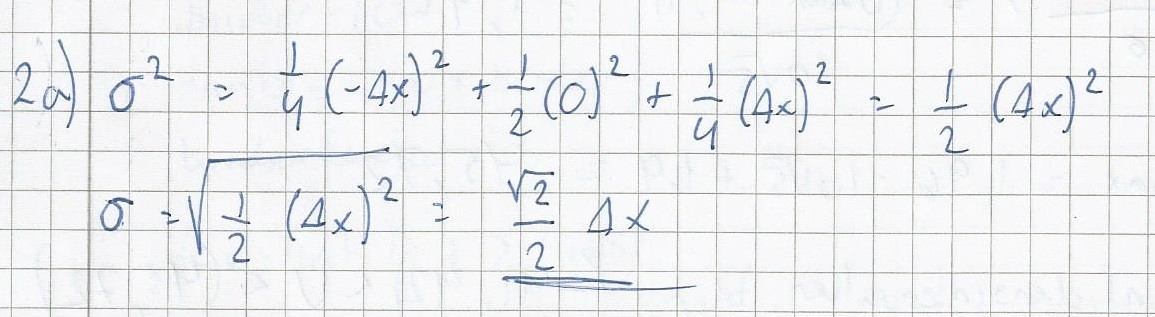 2a) σ² = 1/4 (-Δx)² + 1/2 (0)² + 1/4 (Δx)² = 1/2 (Δx)²
σ = √(1/2 (Δx)²) = √2/2 Δx